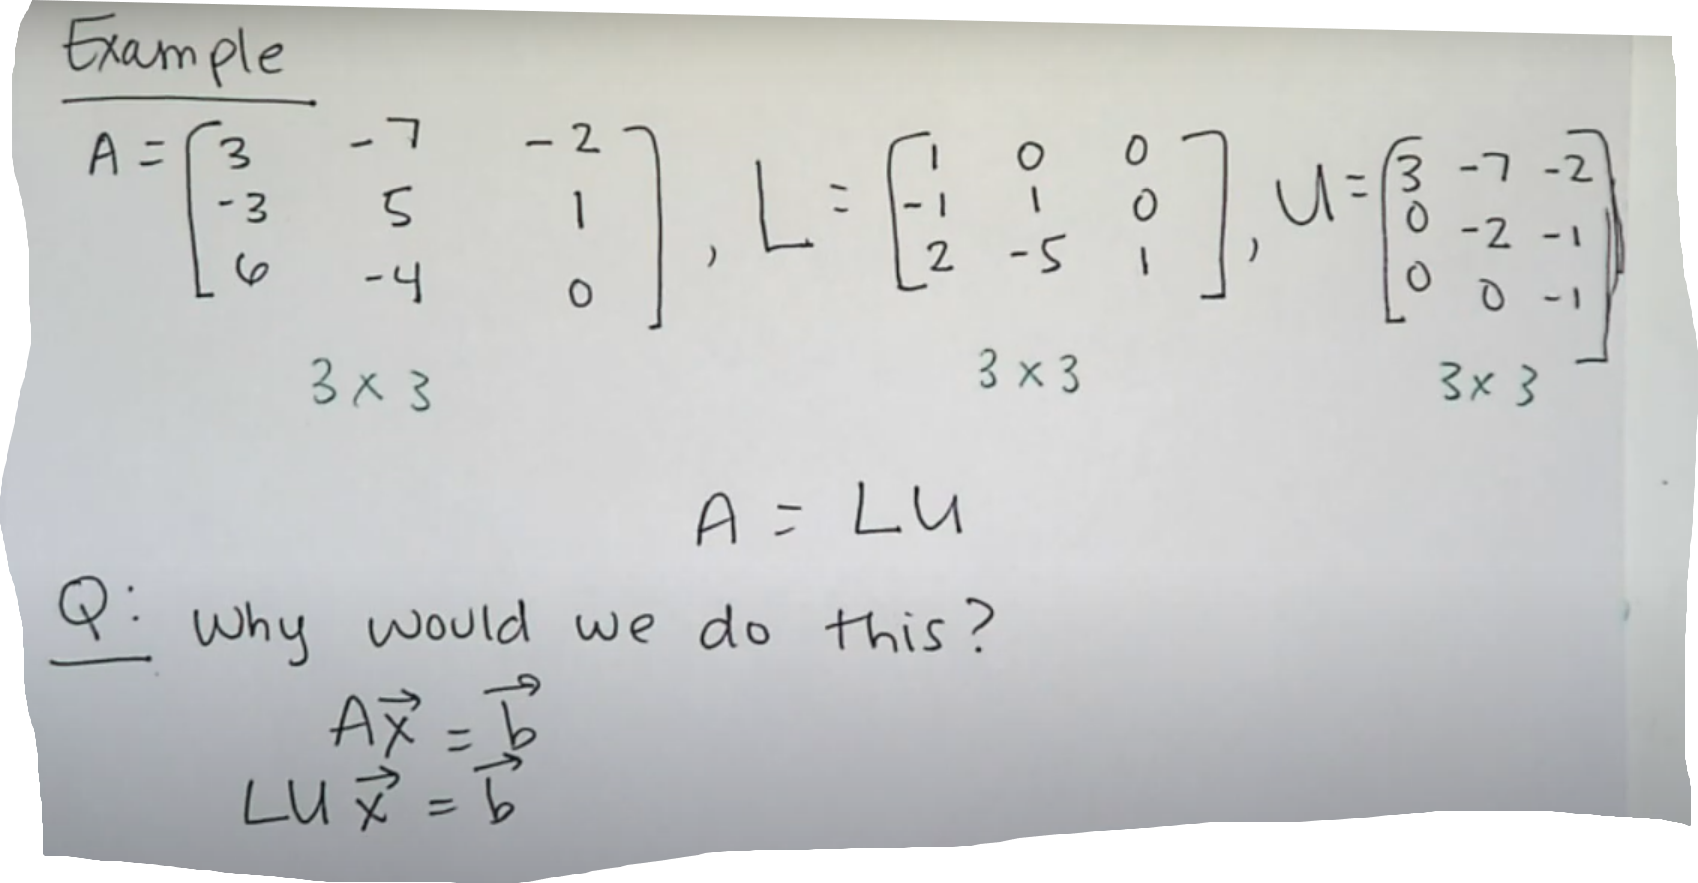 Example
A = [ 3 -7 -2 ; -3 5 1 ; 6 -4 0 ], L = [ 1 0 0 ; -1 1 0 ; 2 -5 1 ], U = [ 3 -7 -2 ; 0 -2 -1 ; 0 0 -1 ]
3 x 3 3 x 3 3 x 3
A = LU
Q: Why would we do this?
Ax⃗ = b⃗
LUx⃗ = b⃗